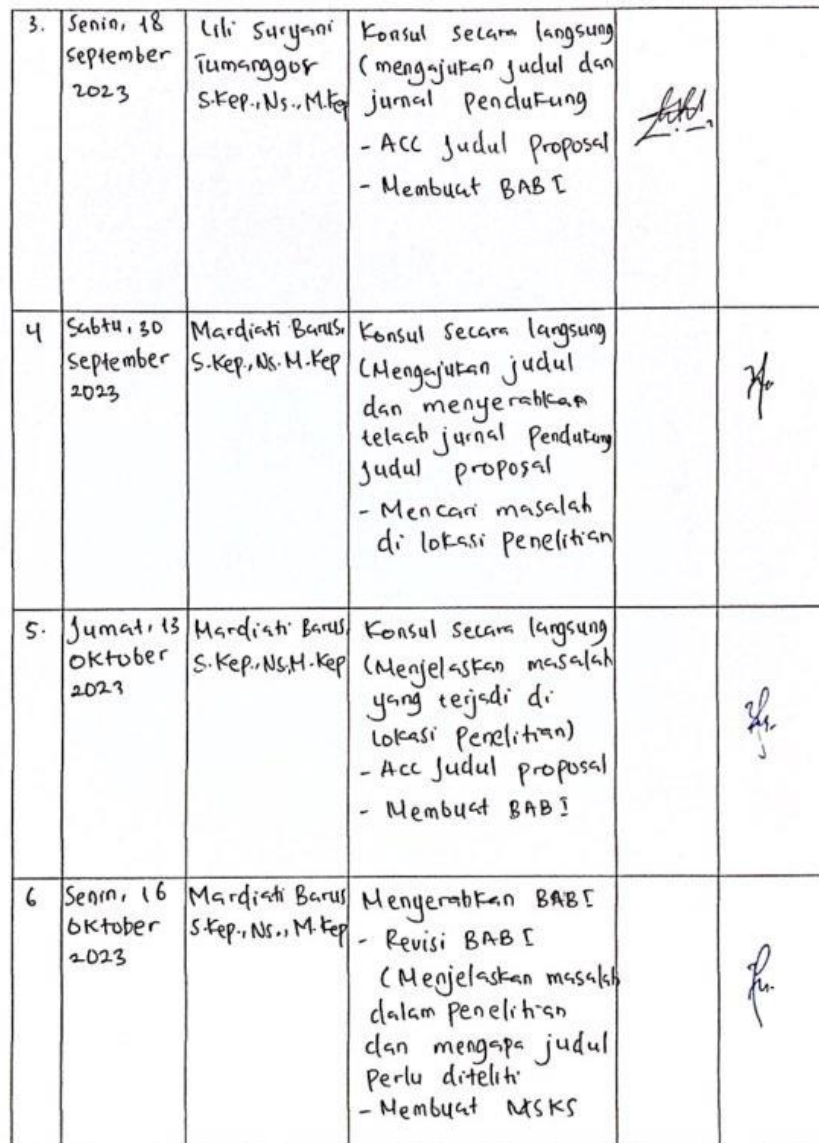 3.
Senin, 18
September
2023
Lili Suryani
Tumanggor
S.Kep., Ns., M.Kep
Konsul secara langsung
(mengajukan judul dan
jurnal pendukung
- ACC Judul Proposal
- Membuat BAB I
4
Sabtu, 30
September
2023
Mardiati Barus,
S.Kep., Ns. M.Kep
Konsul secara langsung
(Mengajukan judul
dan menyerahkan
telaah jurnal Pendukung
Judul proposal
- Mencari masalah
di lokasi Penelitian
5.
Jumat, 13
Oktober
2023
Mardiati Barus,
S.Kep., Ns, M.Kep
Konsul secara langsung
(Menjelaskan masalah
yang terjadi di
Lokasi Penelitian)
- Acc Judul proposal
- Membuat BAB I
6
Senin, 16
Oktober
2023
Mardiati Barus
S.Kep., Ns., M.Kep
Menyerahkan BAB I
- Revisi BAB I
(Menjelaskan masalah
dalam Penelitian
dan mengapa judul
Perlu diteliti
- Membuat MSKS